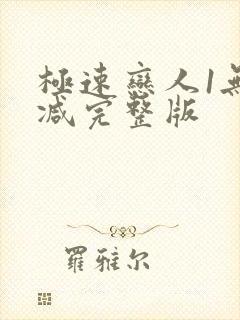 極速戀人1無
减完整版
羅雅尔